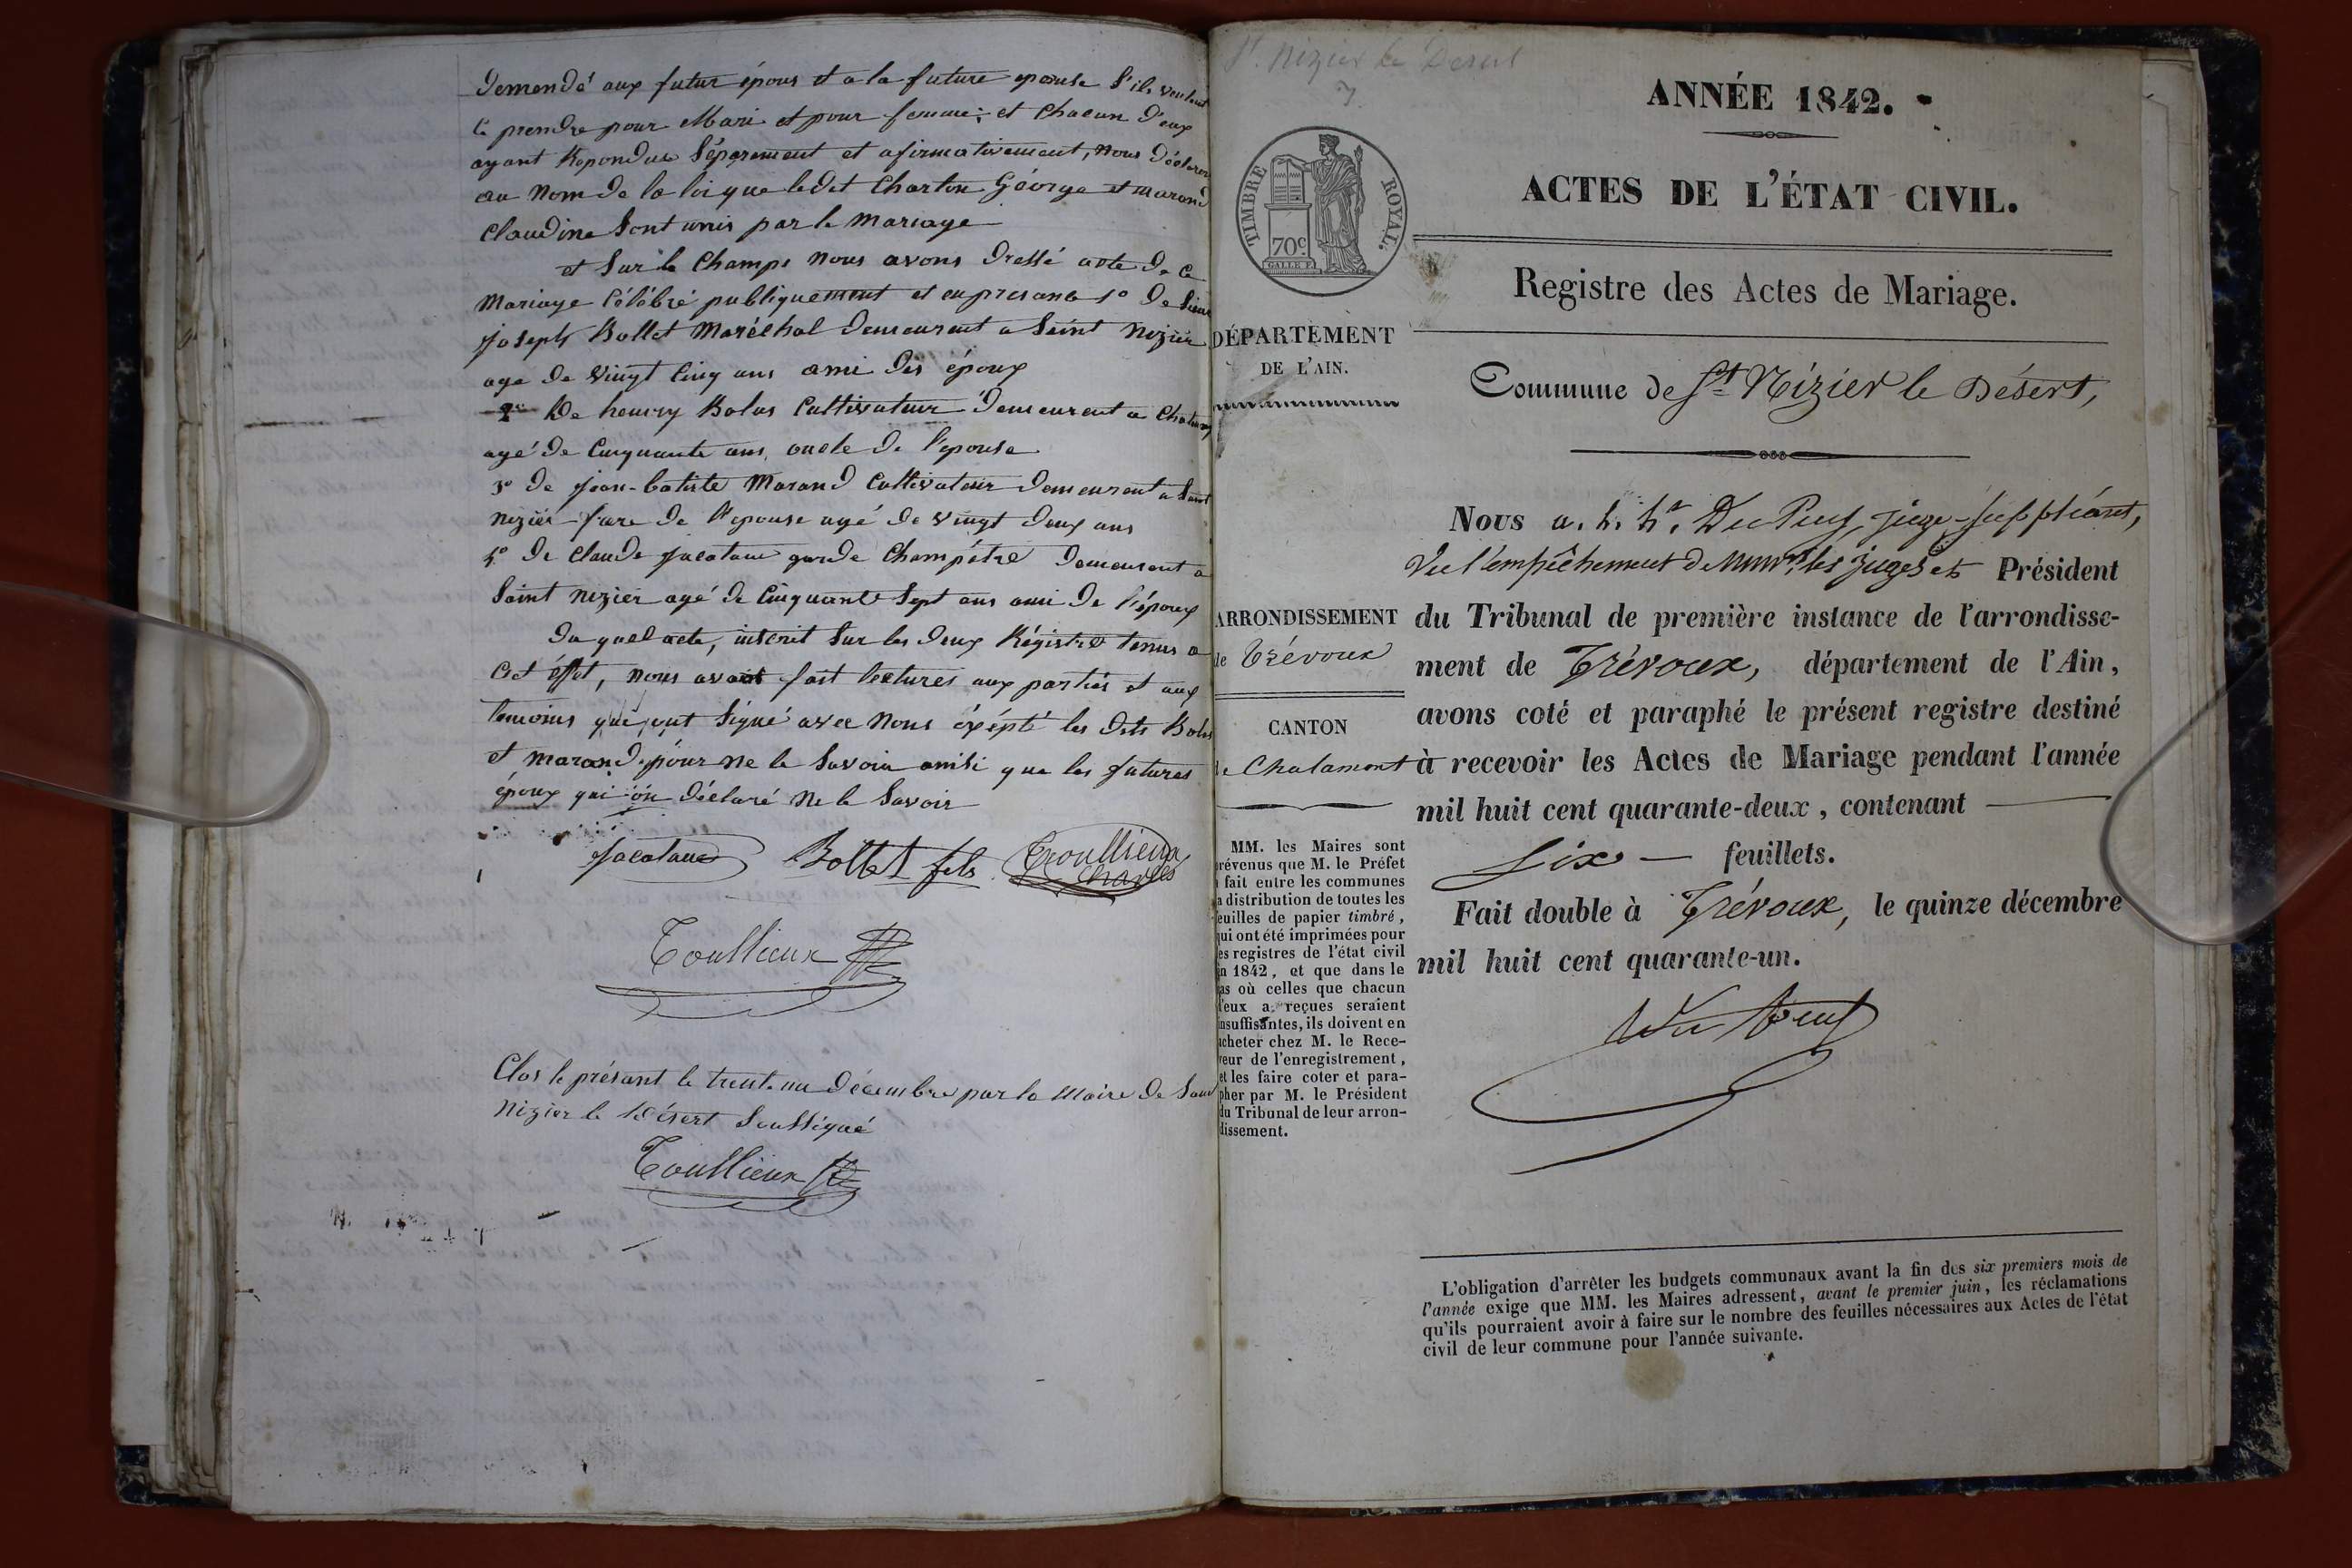 Demendé aux futur épous et a la future epouse s'ils veulent
ce prendre pour Mari et pour femme; et chacun d'eux
ayant Repondus séparement et afirmativement, nous déclarons
au nom de la loi que ledit Charton George et marand
Claudine sont unis par le mariage
et sur le champs nous avons dressé acte de ce
Mariage célébré publiquement et en presance 1o de sieur
joseph Bollet Maréchal demeurent a Saint Nizier
age de vingt cinq ans ami des époux
2o De henry Bolas Cultivateur demeurent a
agé de Cinquante ans, oncle de l'epouse
3o de jean-batiste Marand Cultivateur demeurent a Saint
Nizier frere de l'epouse agé de vingt deux ans
4o de Claude jacolau garde Champétre demeurent a
Saint Nizier agé de Cinquante Sept ans ami de l'époux
du quel acte, inscrit sur les deux Régistres tenus a
cet éffet, nous avont fait lectures aux parties et aux
temoins qui ont signé avec nous éxépté les dits Bolas
et marand pour ne le savoir ainsi que les futures
époux qui on déclaré ne le savoir
Bollet fils
Troullieux
Charles
Toullieux
Clos le présant le trente un décembre par le Maire de Saint
Nizier le Désert soussigné
Toullieux
St. Nizier le Desert
7
TIMBRE ROYAL.
70c
GALLE F.
DÉPARTEMENT
DE L'AIN.
ARRONDISSEMENT
de Trévoux
CANTON
de Chalamont
MM. les Maires sont
prévenus que M. le Préfet
a fait entre les communes
la distribution de toutes les
feuilles de papier timbré,
qui ont été imprimées pour
les registres de l'état civil
en 1842, et que dans le
cas où celles que chacun
d'eux a reçues seraient
insuffisantes, ils doivent en
acheter chez M. le Rece-
veur de l'enregistrement,
et les faire coter et para-
pher par M. le Président
du Tribunal de leur arron-
dissement.
ANNÉE 1842.
ACTES DE L'ÉTAT CIVIL.
Registre des Actes de Mariage.
Commune de St Nizier le Désert,
Nous Du Puy, juge-suppléant,
Vu l'empêchement de MMrs. les juges et Président
du Tribunal de première instance de l'arrondisse-
ment de Trévoux, département de l'Ain,
avons coté et paraphé le présent registre destiné
à recevoir les Actes de Mariage pendant l'année
mil huit cent quarante-deux, contenant
six feuillets.
Fait double à Trévoux, le quinze décembre
mil huit cent quarante-un.
L'obligation d'arrêter les budgets communaux avant la fin des six premiers mois de
l'année exige que MM. les Maires adressent, avant le premier juin, les réclamations
qu'ils pourraient avoir à faire sur le nombre des feuilles nécessaires aux Actes de l'état
civil de leur commune pour l'année suivante.